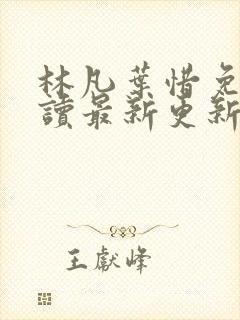 林凡葉惜免
讀最新更新
王獻峰